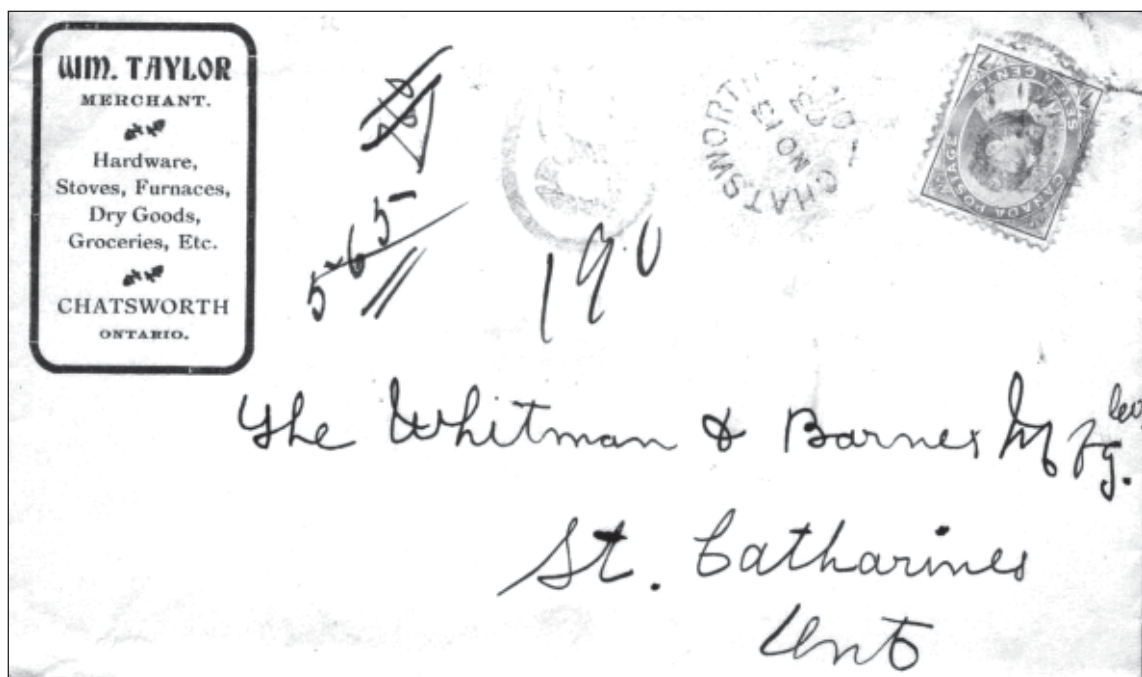 WM. TAYLOR
MERCHANT.
Hardware,
Stoves, Furnaces,
Dry Goods,
Groceries, Etc.
CHATSWORTH
ONTARIO.
565
190
CHATSWORTH ONT
NO 13
CANADA POSTAGE
CENTS
The Whitman & Barnes Mfg.
St. Catharines
Ont